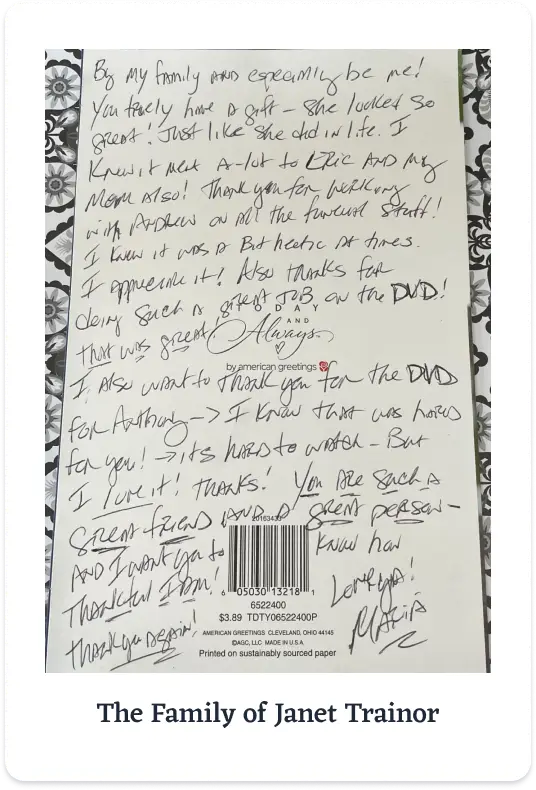 By my family AND especially be me!
You truely have a gift - she looked so
great! Just like she did in life. I
Know it meant A-lot to ERIC AND my
Mom Also! Thank you for working
with ANDREW on All the funeral stuff!
I know it was A Bit hectic At times.
I appreciate it! Also thanks for
doing such A great JOB on the DVD!
TODAY
AND
that was great.
Always
by american greetings
I Also want to Thank you for the DVD
for Anthony -> I know that was hard
for you! -> its hard to watch - But
I love it! Thanks! You Are such A
great friend AND A great person -
AND I want you to know how
Thankful I Am!
thank you Again!
Love ya!
MARIA
6 05030 13218 1
6522400
$3.89 TDTY06522400P
AMERICAN GREETINGS CLEVELAND, OHIO 44145
©AGC, LLC MADE IN U.S.A.
Printed on sustainably sourced paper
The Family of Janet Trainor